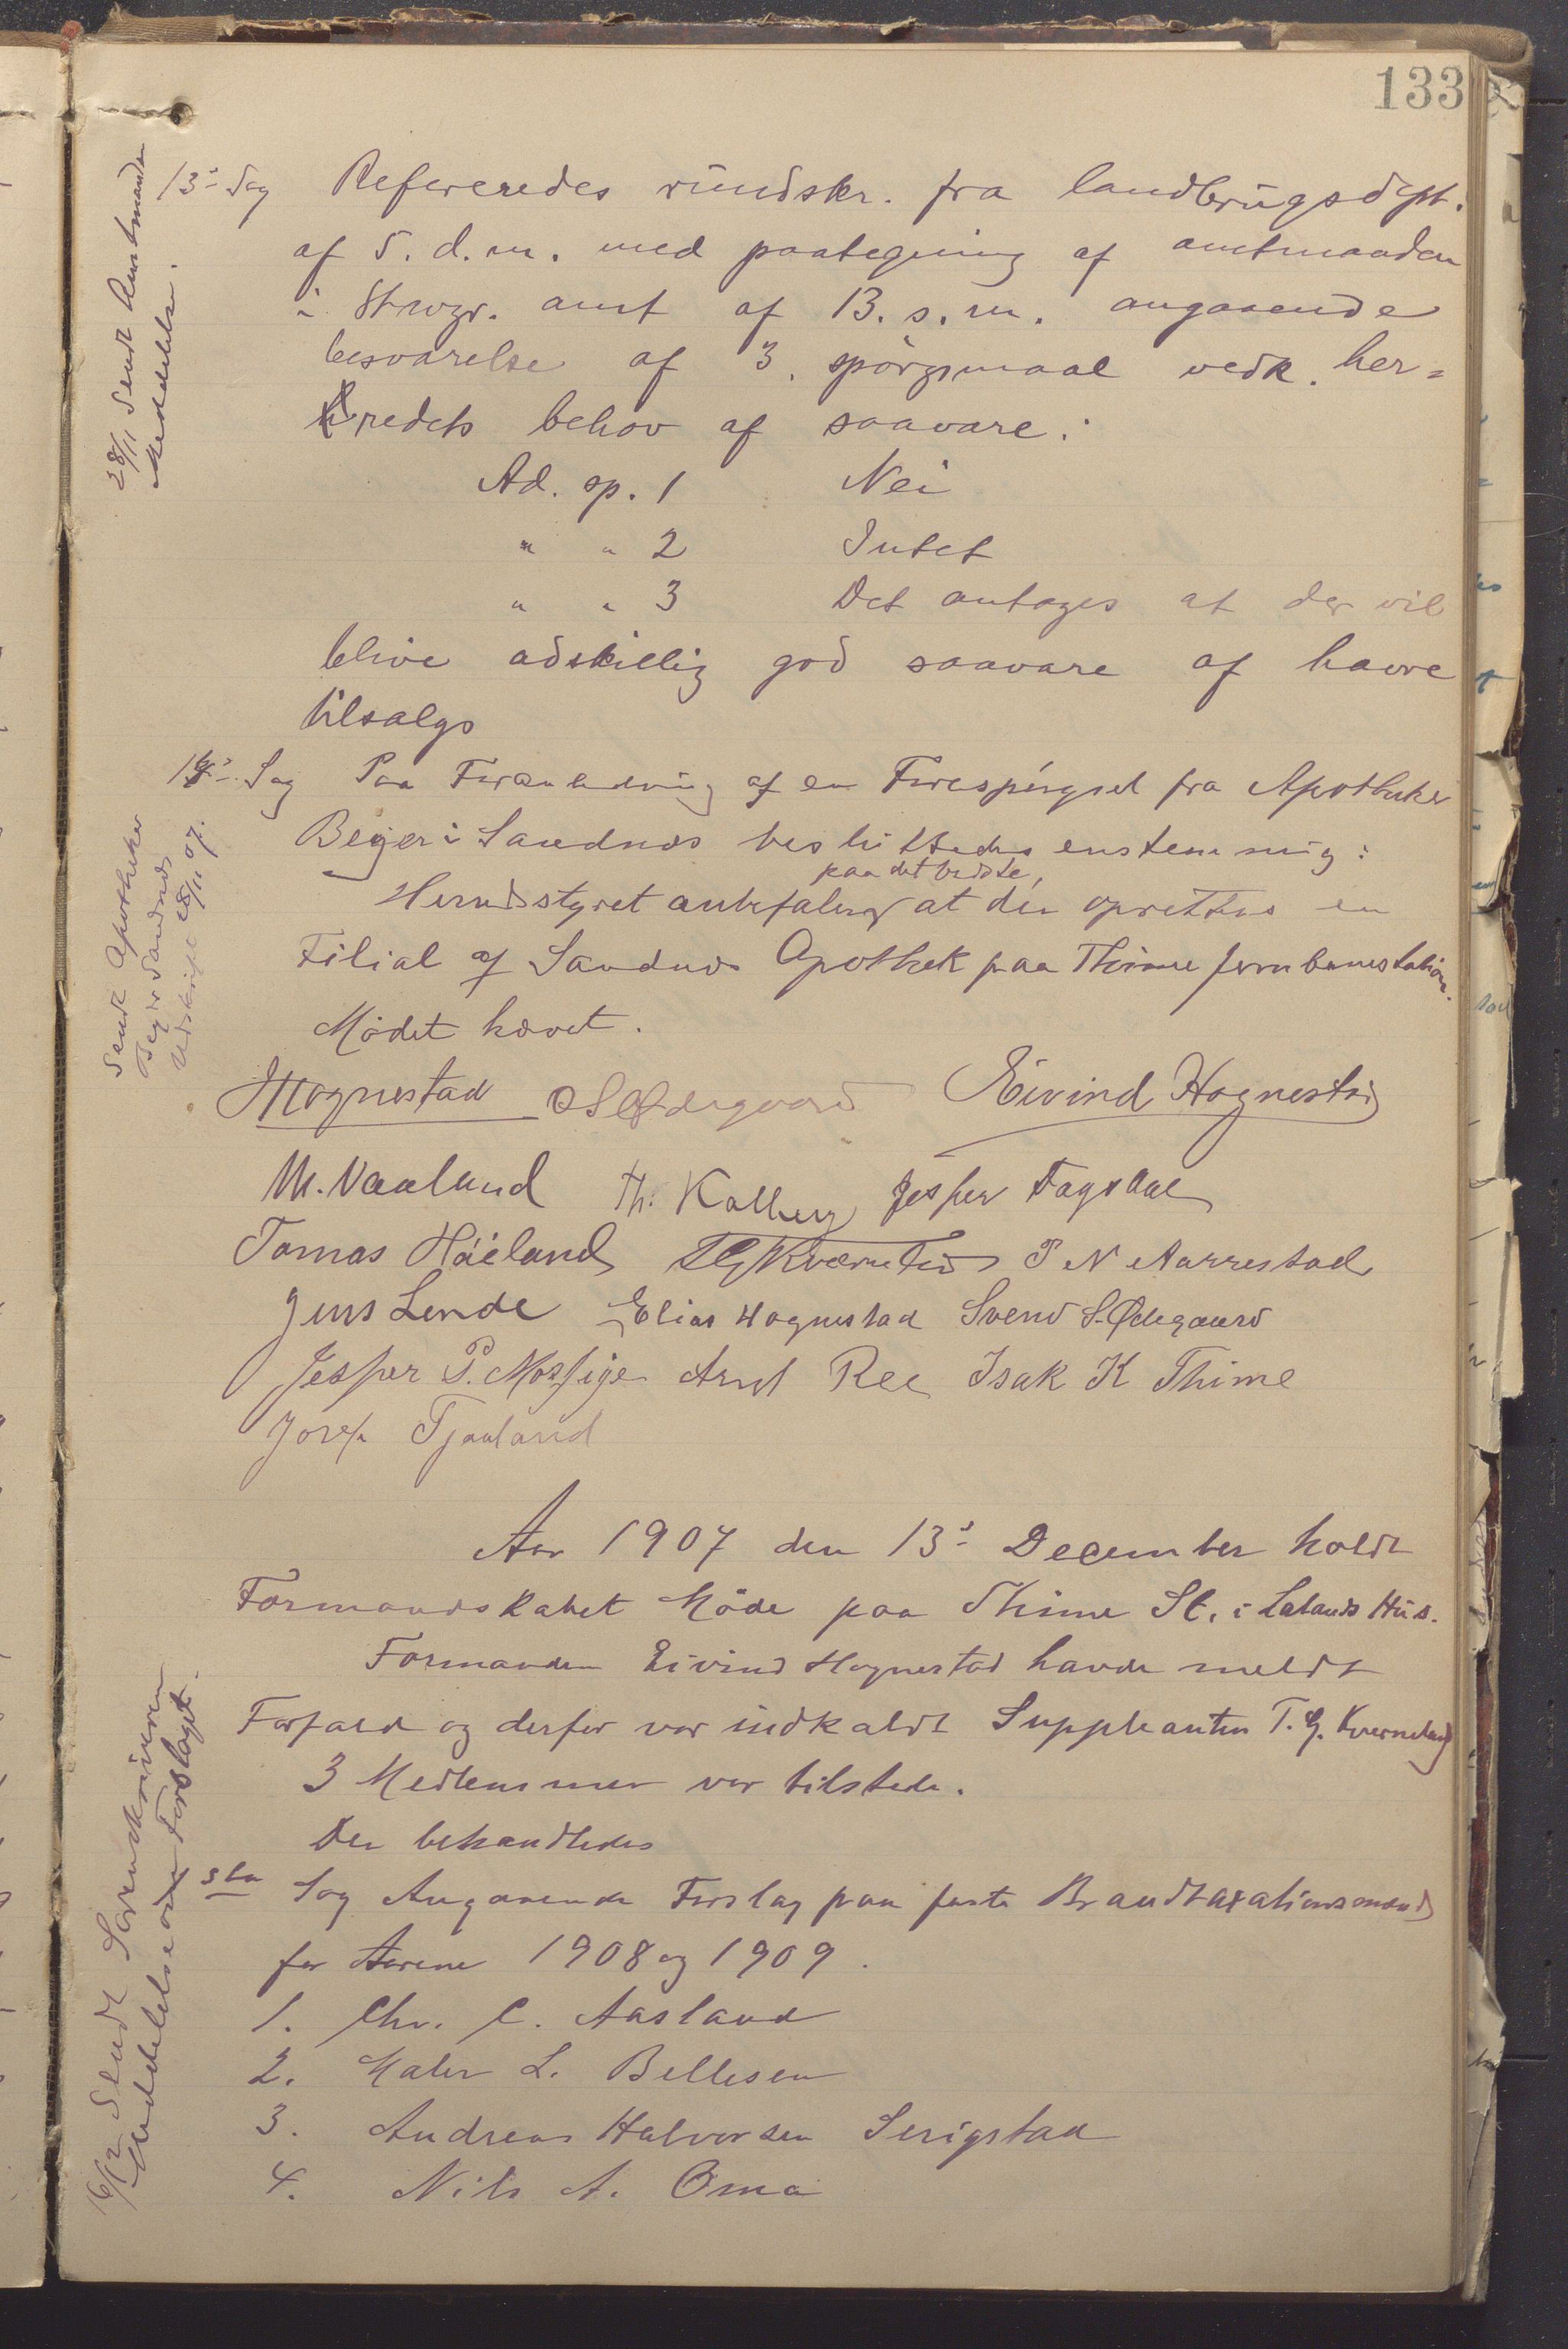 133
13de Sag Refereredes rundskr. fra landbrugsdept.
af 5. d.m. med paategning af amtmanden
i Stvgr. amt af 13. s.m. angaaende
besvarelse af 3 spörgsmaal vedk. her=
redets behov af saavare:
Ad. sp. 1 Nei
" " 2 Intet
" " 3 Det antages at der vil
blive adskillig god saavare af havre
tilsalgs
28/11 Sendt Amtmanden
Meddelelse.
14de Sag Paa Foranledning af en Forespörgsel fra Apotheker
Beyer i Sandnes besluttedes enstemmig:
paa det bedste,
Herredsstyret anbefaler at der oprettes en
Filial af Sandnes Apothek paa Thime jernbanestation.
Mödet hævet.
Sendt Apotheker
Beyer Sandnes
Udskrift 28/11 07.
Hognestad O S Ødegaard Eivind Hognestad
M. Vaaland Th. Kalberg Jesper Fagdal
Tomas Håeland T G Kværneland P N Aarrestad
Jens Lende Elias Hognestad Svend S. Ødegaard
Jesper P. Mossige Arnt Ree Isak K Thime
Josef Tjaaland
Aar 1907 den 13de December holdt
Formandskabet Möde paa Thime St. i Lalands Hus.
Formanden Eivind Hognestad havde meldt
Forfald og derfor var indkaldt Suppleanten T. G. Kverneland
3 Medlemmer var tilstede.
Der behandledes
1ste Sag Angaaende Forslag paa faste Brandtaxationsmænd
for Aarene 1908 og 1909.
1. Chr. C. Aasland
2. Maler L. Bellesen
3. Andreas Halvorsen Serigstad
4. Nils A. Oma
16/12 Sendt Sorenskriveren
Meddelelse om Forslaget.